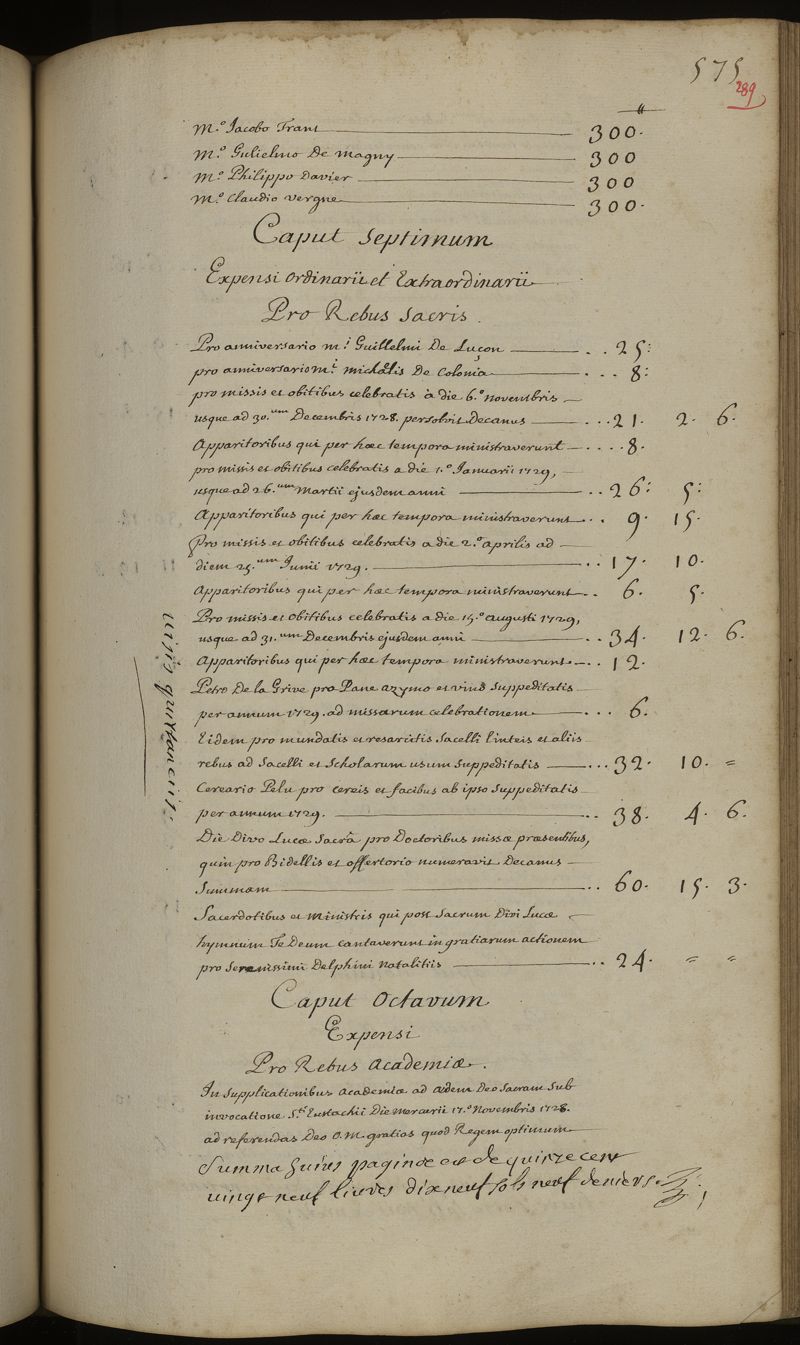 575
289
₶
M.º Jacobo Frant 300.
M.º Gulielmo De Magny 300
M.º Philippo Davier 300
M.º Claudio Vergne 300.
Caput Septimum
Expensi Ordinarii et Extraordinarii
Pro Rebus Sacris.
Pro anniversario m.i Guillelmi De Luçon 25:
pro anniversario M.i Michaëlis De Colonia 8:
pro missis et obitibus celebratis à die 6.º Novembris
usque ad 30.um Decembris 1728. persolvit Decanus 21. 2. 6.
Apparitoribus qui per hæc tempora ministraverunt 8.
pro missis et obitibus celebratis a die 1.º Januarii 1729,
usque ad 26.um Martii ejusdem anni 26: 5:
Apparitoribus qui per hæc tempora ministraverunt 9. 15.
Pro missis et obitibus celebratis a die 2.º aprilis ad
diem 25.um Junii 1729. 17. 10.
Apparitoribus qui per hæc tempora ministraverunt 6. 5.
Pro missis et obitibus celebratis a die 15.º augusti 1729,
usque ad 31.um Decembris ejusdem anni 34. 12. 6.
Apparitoribus qui per hæc tempora ministraverunt 12.
Petro De la Grive pro Pane azymo et vino suppeditatis
per annum 1729. ad missarum celebrationem 6.
Eidem pro mundatis et resarcitis Sacelli linteis et aliis
rebus ad Sacelli et Scholarum usum suppeditatis 32. 10. =
Cereario Pelu pro cereis et facibus ab ipso suppeditatis
per annum 1729. 38. 4. 6.
Die Divo Lucæ Sacrâ pro Doctoribus missæ præsentibus,
quin pro Bidellis et offertorio numeravit Decanus
Summam 60. 15. 3.
Sacerdotibus et Ministris qui post Sacrum Divi Lucæ
hymnum Te Deum cantaverunt in gratiarum actionem
pro Serenissimi Delphini Natalitiis 24. = =
visis quittanciis.
Caput Octavum
Expensi
Pro Rebus Academiæ.
In Supplicationibus Academiæ ad ædem Deo Sacram Sub
invocatione S.ti Eustachii Die Mercurii 17.º Novembris 1728.
ad referendas Deo O.M. gratias quod Regem optimum
Summa huius paginae est de quinze cent
vingt neuf livres dix neuf sols neuf deniers